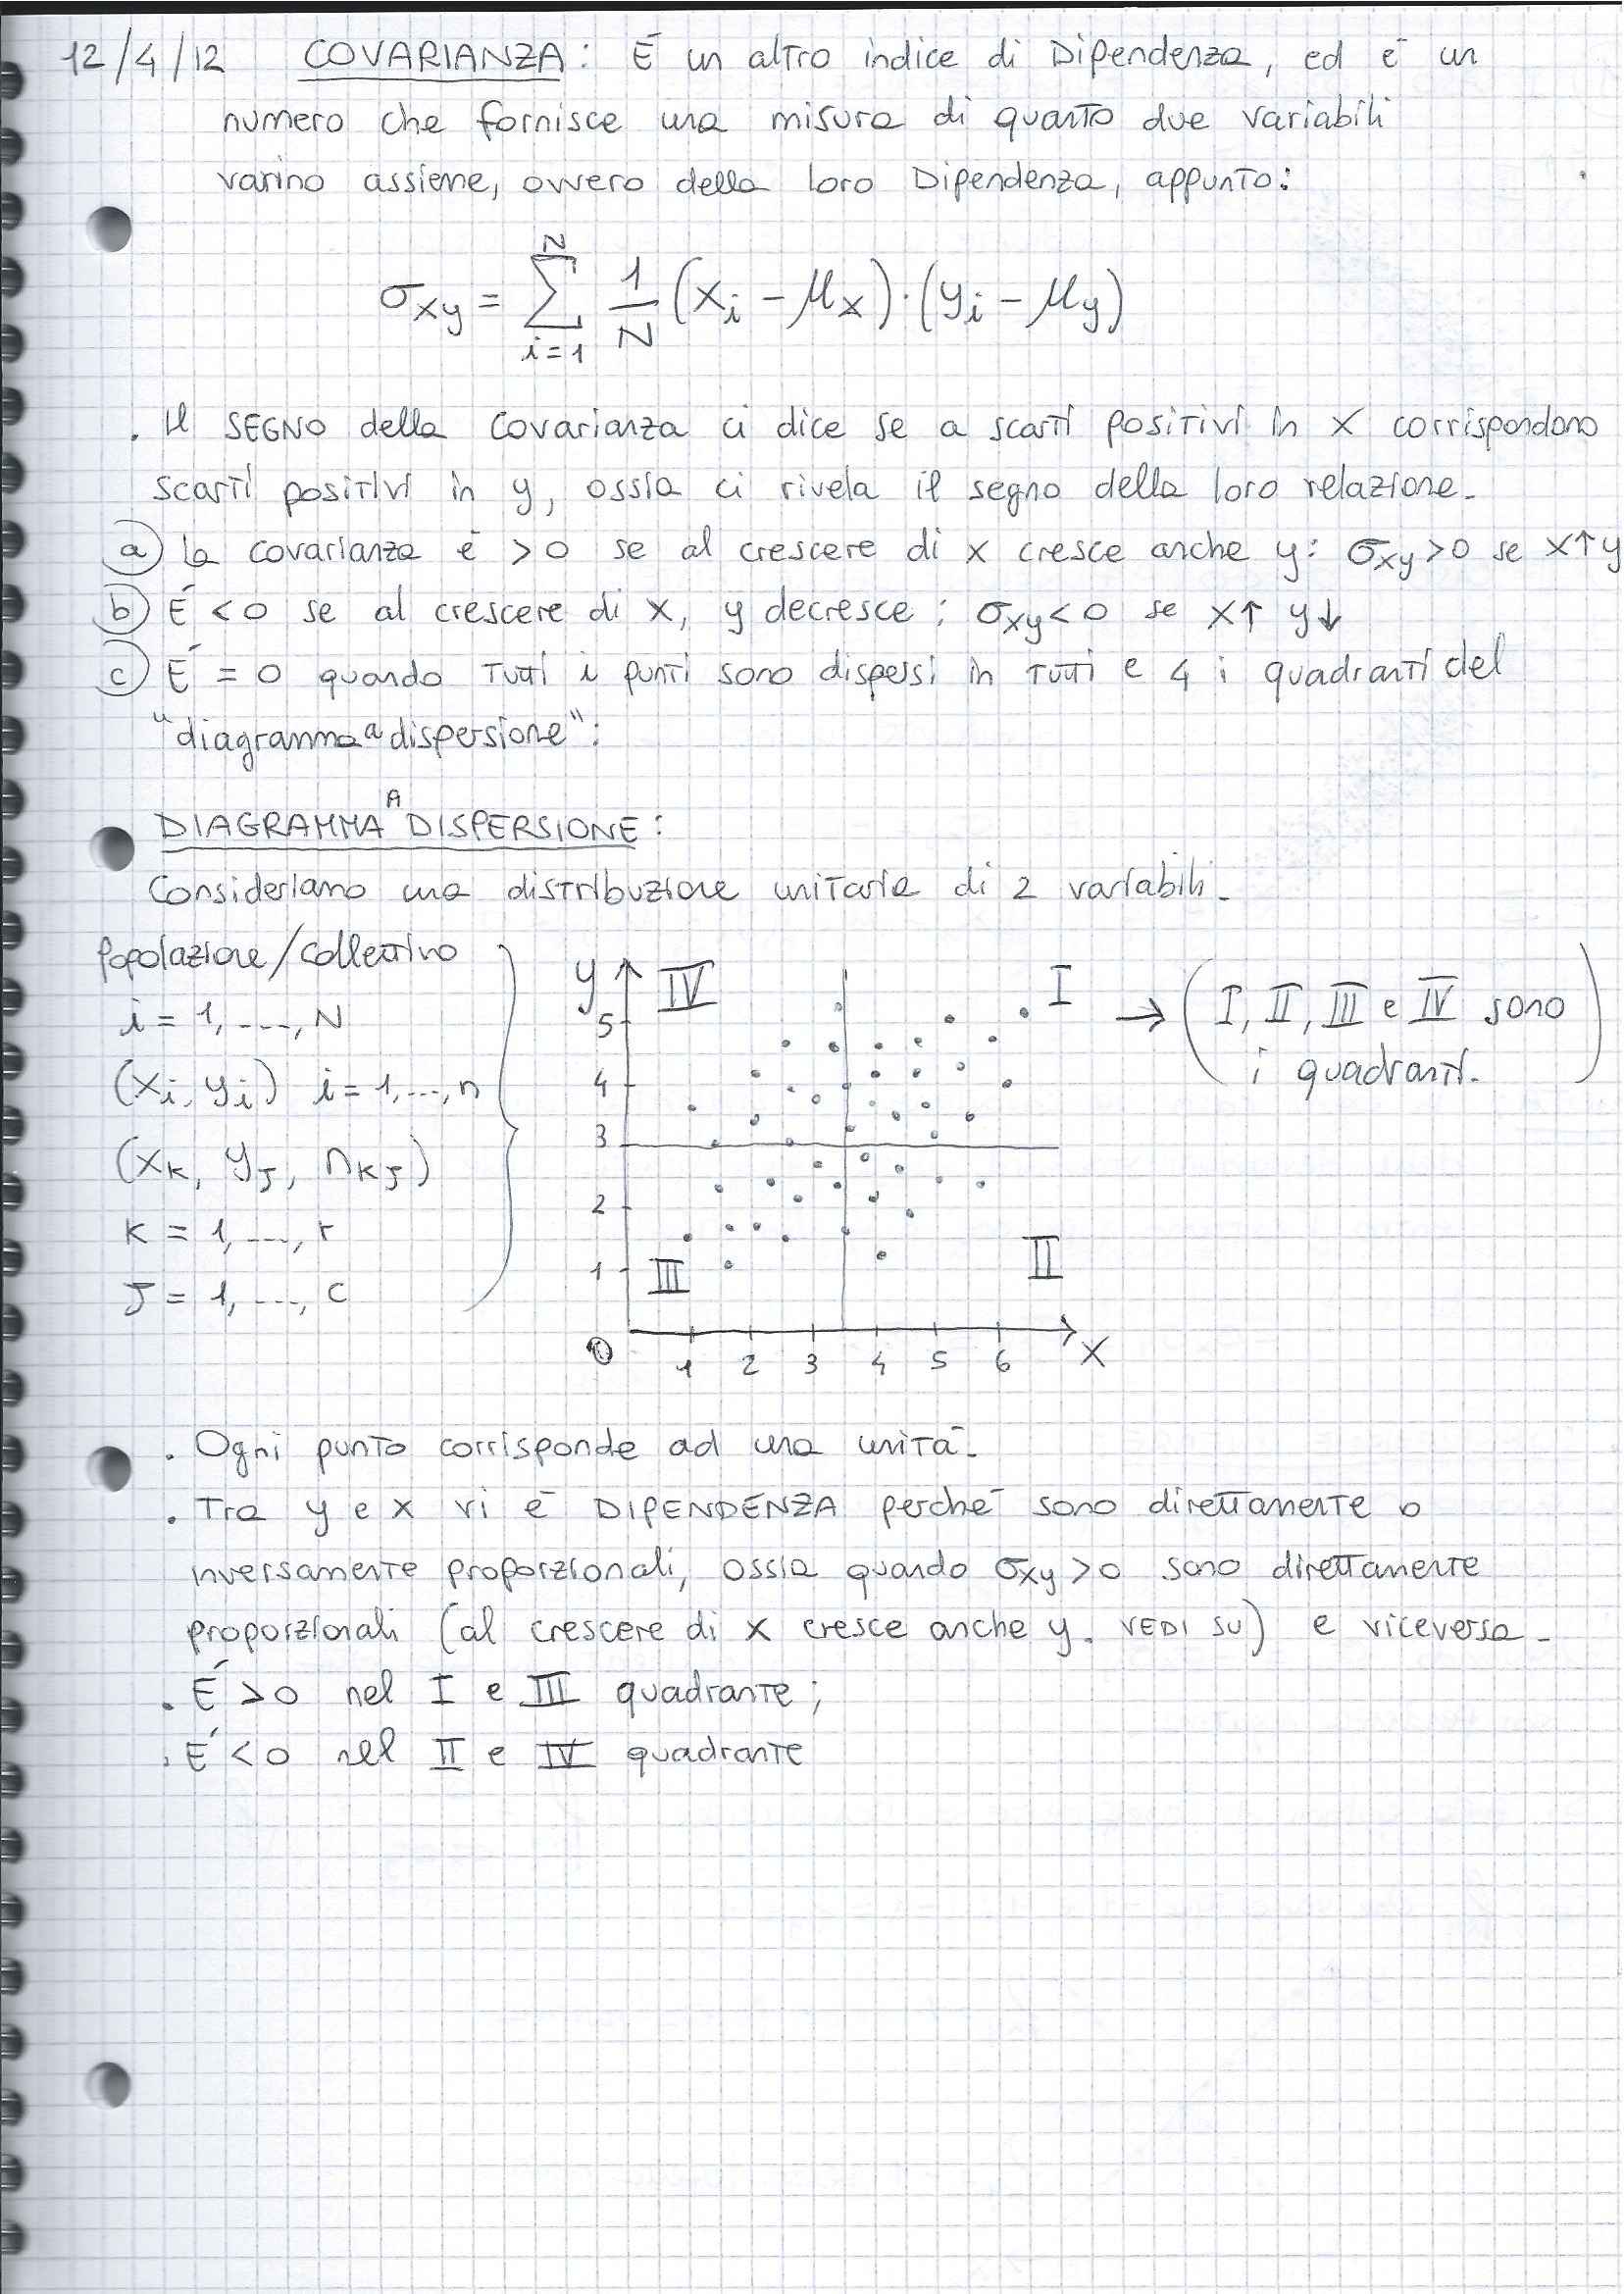 12/4/12 COVARIANZA: É un altro indice di Dipendenza, ed è un
numero che fornisce una misura di quanto due variabili
varino assieme, ovvero della loro Dipendenza, appunto:
σxy = N∑i=1 1/N (xi - μx)·(yi - μy)
. Il SEGNO della covarianza ci dice se a scarti positivi in X corrispondono
scarti positivi in y, ossia ci rivela il segno della loro relazione.
a) la covarianza è >0 se al crescere di x cresce anche y: σxy>0 se X↑y
b) É <0 se al crescere di x, y decresce; σxy<0 se X↑ y↓
c) É =0 quando tutti i punti sono dispersi in tutti e 4 i quadranti del
"diagramma a dispersione":
DIAGRAMMA A DISPERSIONE:
Consideriamo una distribuzione unitaria di 2 variabili.
Popolazione/Collettivo
i = 1, ----, N
(xi, yi) i = 1,...,n
(xK, yJ, nKJ)
K = 1, ----, r
J = 1, ----, C
y IV I
5
4
3
2
1 III II
0 1 2 3 4 5 6 X
→ (I, II, III e IV sono
i quadranti.)
. Ogni punto corrisponde ad una unità.
. Tra y e x vi è DIPENDENZA perché sono direttamente o
inversamente proporzionali, ossia quando σxy>0 sono direttamente
proporzionali (al crescere di x cresce anche y. VEDI SU) e viceversa.
. É >0 nel I e III quadrante;
. É <0 nel II e IV quadrante